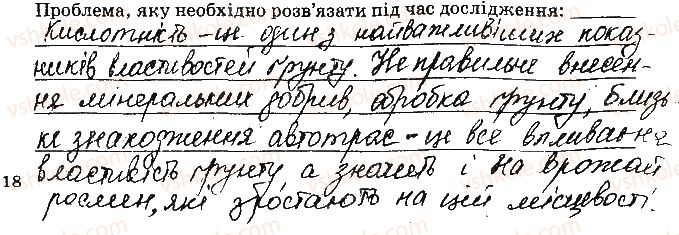 Проблема, яку необхідно розв'язати під час дослідження:
Кислотність – це один з найважливіших показ-
ників властивостей ґрунту. Неправильне внесен-
ня мінеральних добрив, обробка ґрунту, близь-
ке знаходження автотрас – це все впливає на
властивість ґрунту а значить і на врожай
18
рослин, які зростають на цій місцевості.